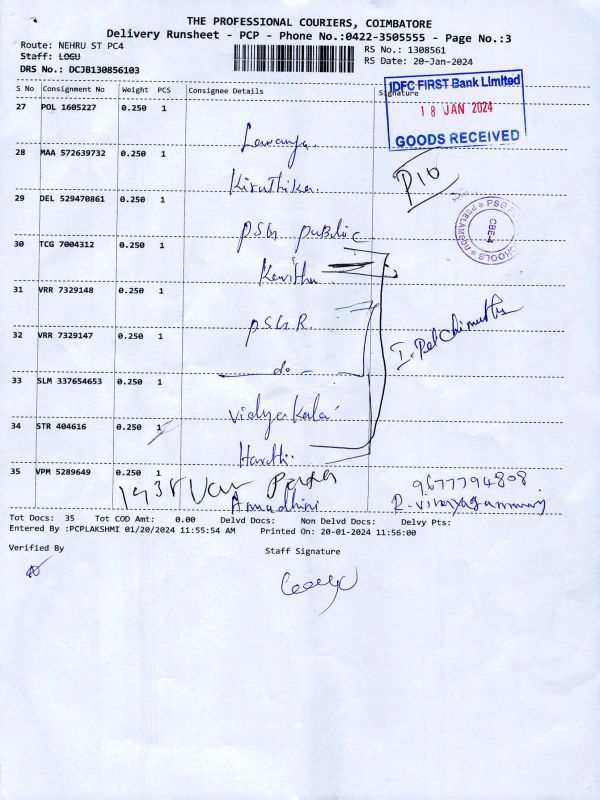 THE PROFESSIONAL COURIERS, COIMBATORE
Delivery Runsheet - PCP - Phone No.:0422-3505555 - Page No.:3
Route: NEHRU ST PC4
RS No.: 1308561
Staff: LOGU
RS Date: 20-Jan-2024
DRS No.: DCJB130856103
S No Consignment No Weight PCS Consignee Details Signature
IDFC FIRST Bank Limited
18 JAN 2024
GOODS RECEIVED
27 POL 1605227 0.250 1
Lavanya.
28 MAA 572639732 0.250 1
Kiruthika.
29 DEL 529470861 0.250 1
PSG public
30 TCG 7004312 0.250 1
Kavitha
31 VRR 7329148 0.250 1
PSG.R.
32 VRR 7329147 0.250 1
do
33 SLM 337654653 0.250 1
Vidyakala
34 STR 404616 0.250 1
Harathi.
35 VPM 5289649 0.250 1
Amudhini
9677794808
Tot Docs: 35 Tot COD Amt: 0.00 Delvd Docs: Non Delvd Docs: Delvy Pts:
Entered By :PCPLAKSHMI 01/20/2024 11:55:54 AM Printed On: 20-01-2024 11:56:00
Verified By
Staff Signature